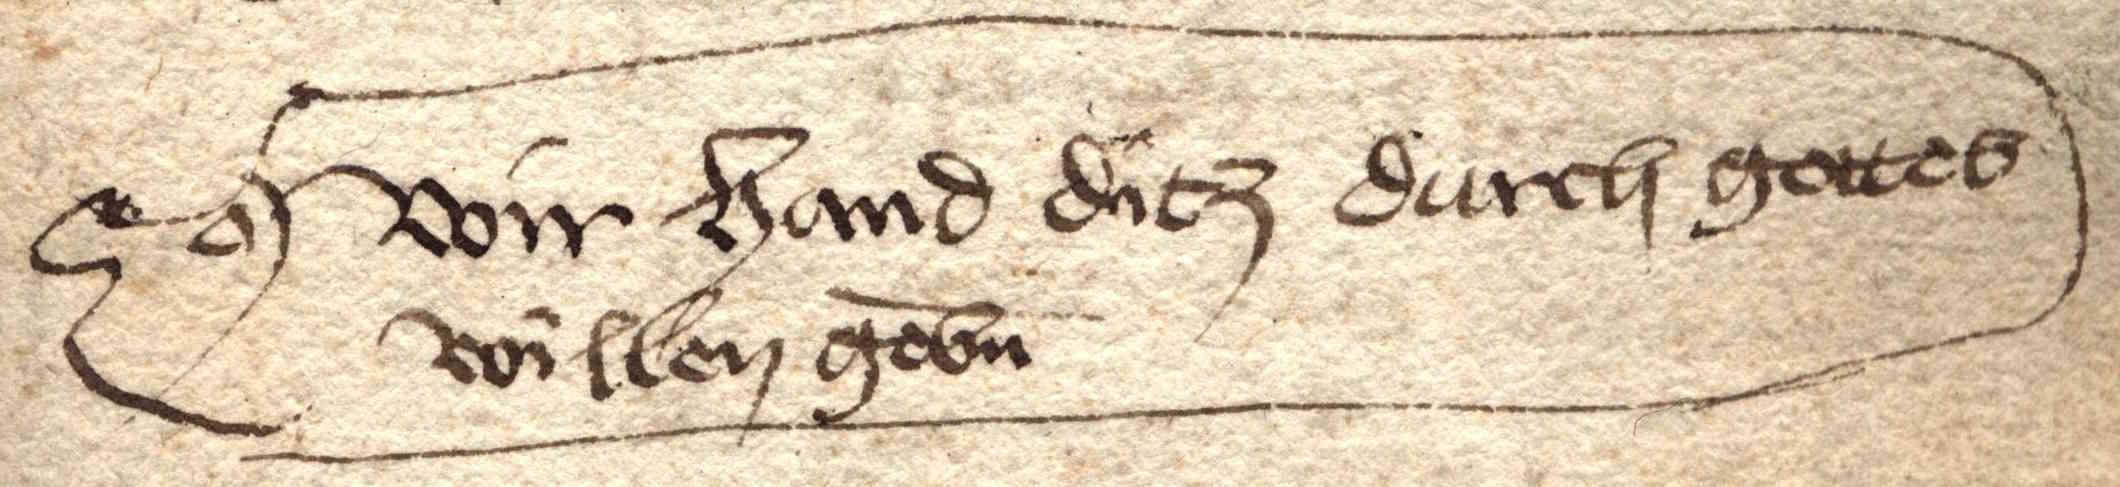 Wir hand ditz durch gottes
willen gebn